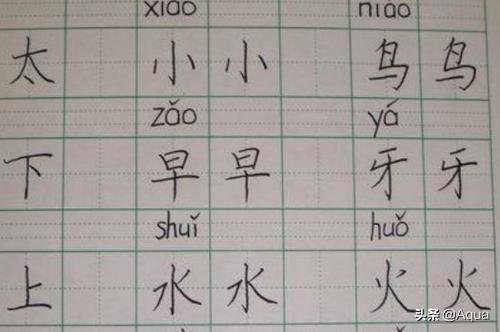 xiǎo niǎo
太 小 小 鸟 鸟
zǎo yá
下 早 早 牙 牙
shuǐ huǒ
上 水 水 火 火
头条 @Aqua